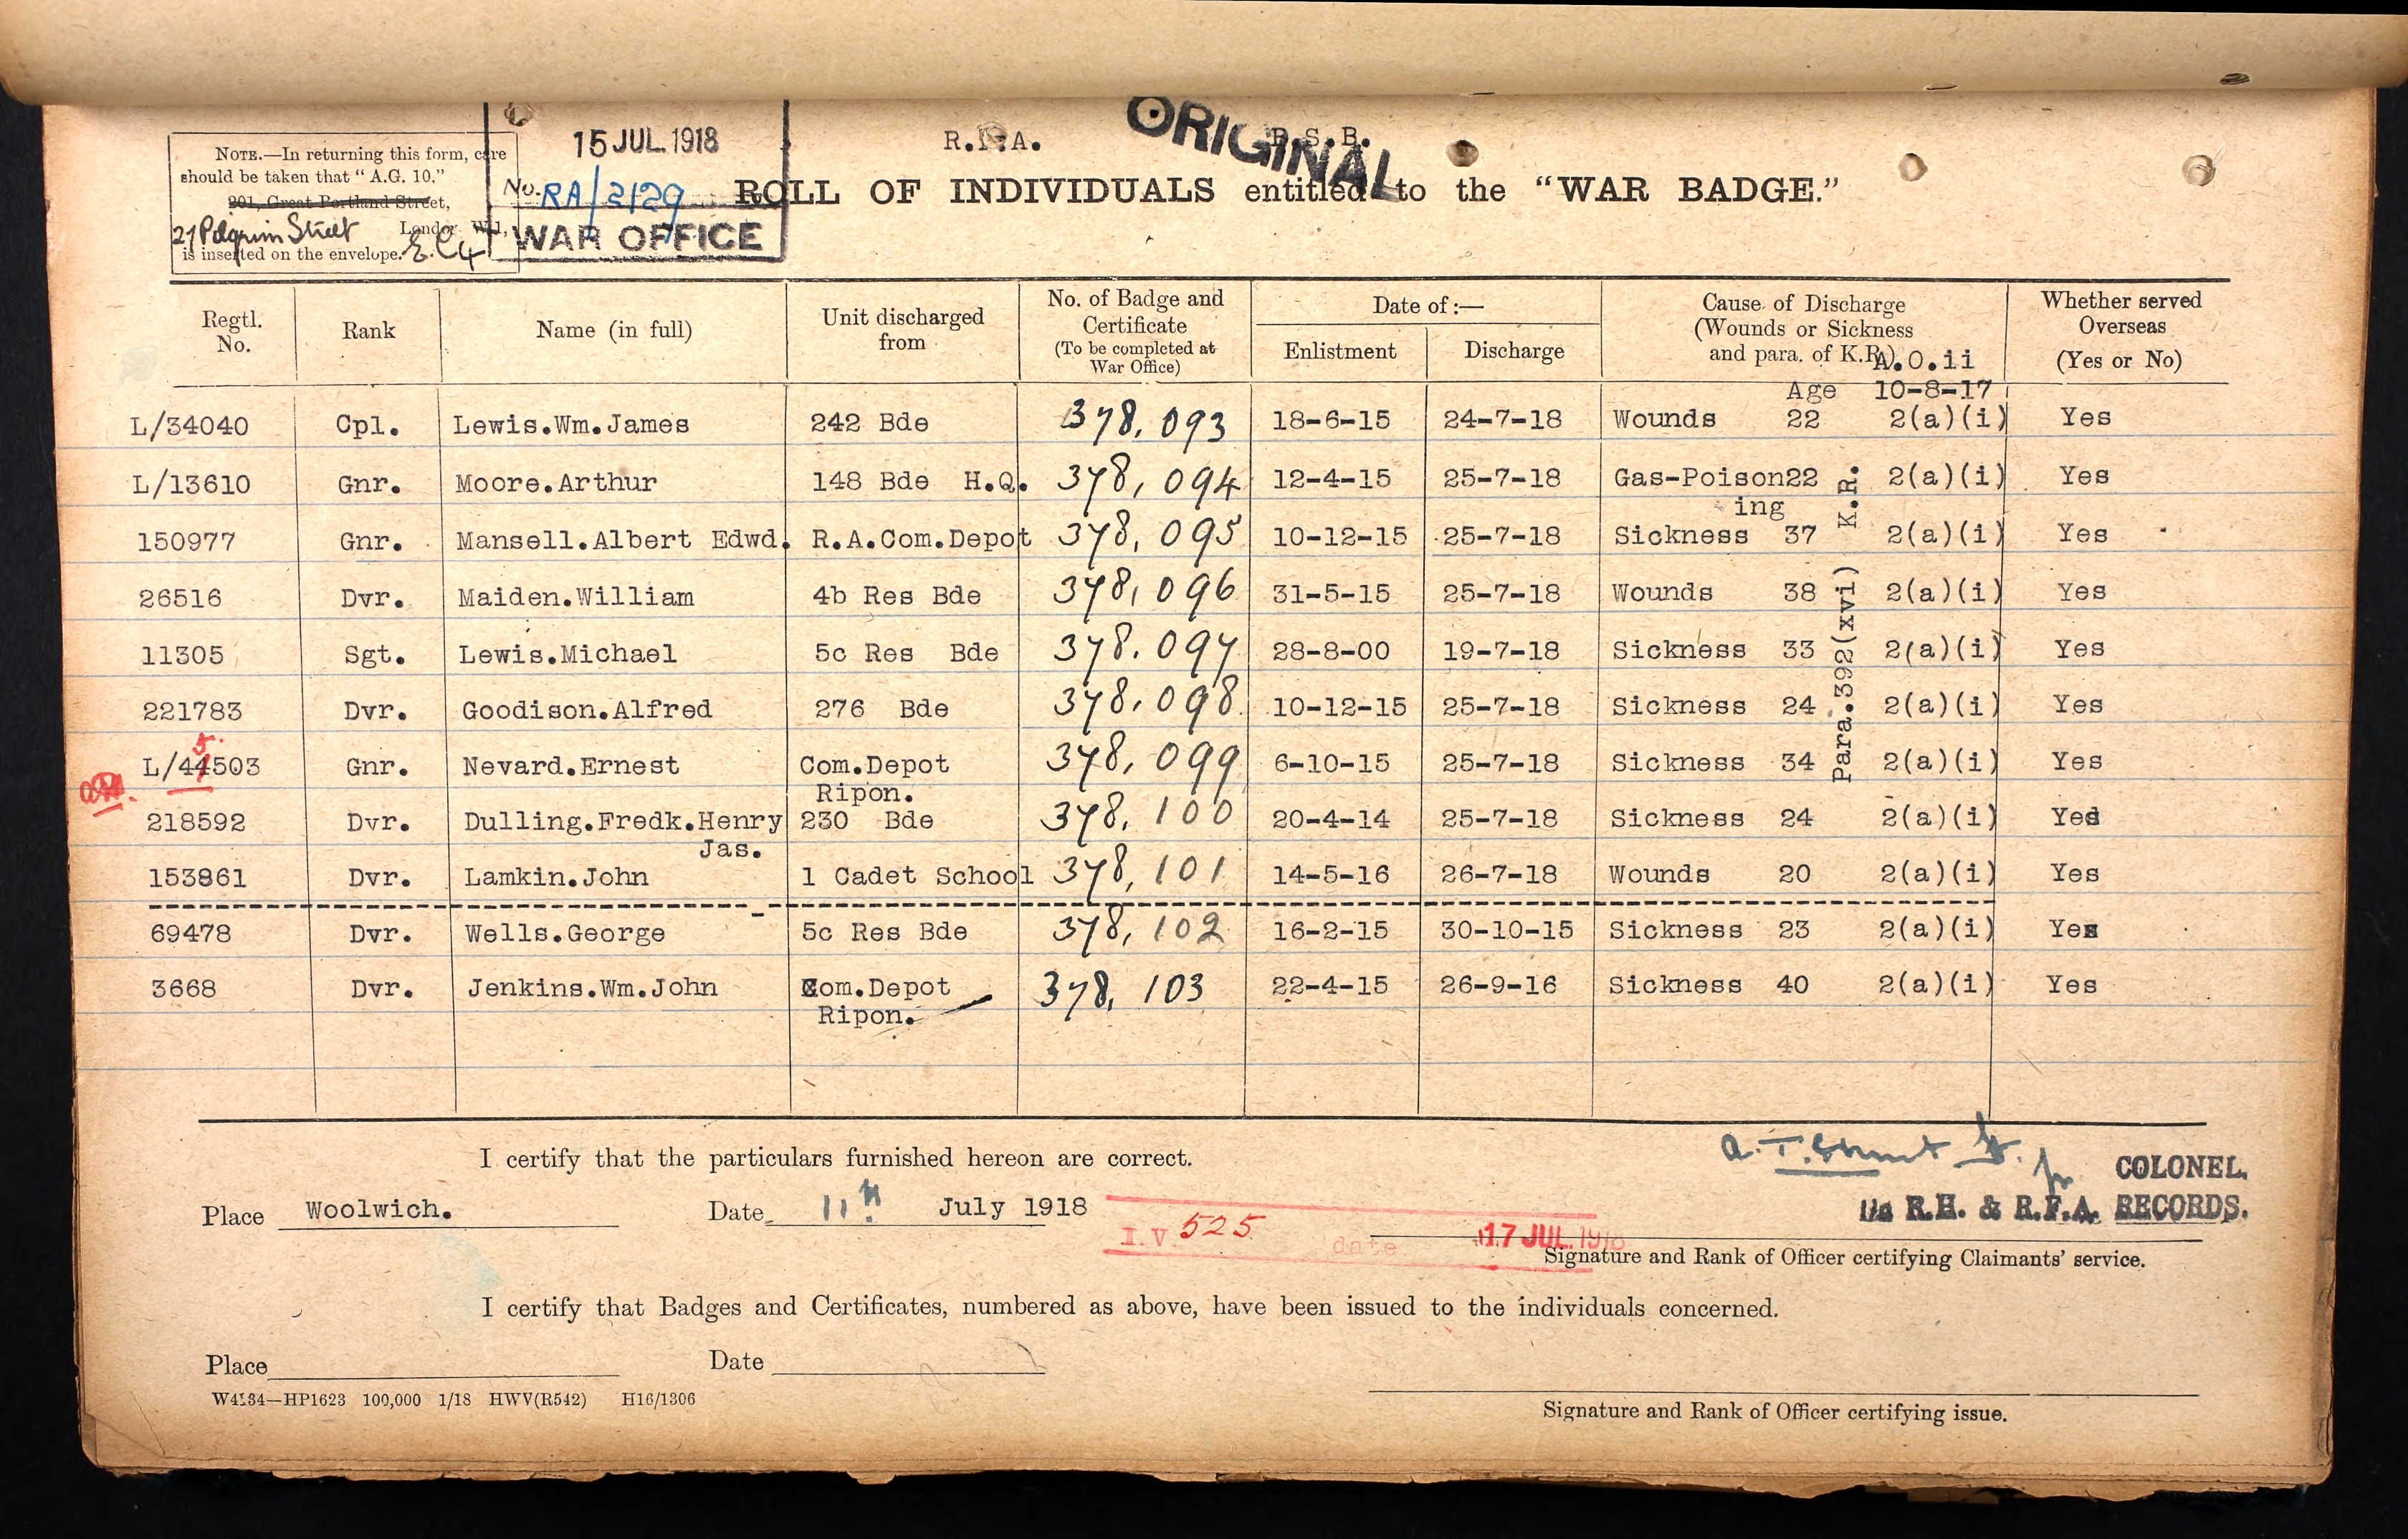 15 JUL. 1918
R.F.A.
ORIGINAL
R.S.B.
NOTE.—In returning this form, care
should be taken that "A.G. 10."
201, Great Portland Street,
27 Pilgrim Street London W.1,
is inserted on the envelope. E.C4
No. RA/2/29
WAR OFFICE
ROLL OF INDIVIDUALS entitled to the "WAR BADGE."
Regtl. No. | Rank | Name (in full) | Unit discharged from | No. of Badge and Certificate (To be completed at War Office) | Date of:— Enlistment | Discharge | Cause of Discharge (Wounds or Sickness and para. of K.R.) | Whether served Overseas (Yes or No)
A.O.ii
Age 10-8-17
L/34040 Cpl. Lewis.Wm.James 242 Bde 378,093 18-6-15 24-7-18 Wounds 22 2(a)(i) Yes
L/13610 Gnr. Moore.Arthur 148 Bde H.Q. 378,094 12-4-15 25-7-18 Gas-Poison22 2(a)(i) Yes
ing
150977 Gnr. Mansell.Albert Edwd. R.A.Com.Depot 378,095 10-12-15 25-7-18 Sickness 37 2(a)(i) Yes
26516 Dvr. Maiden.William 4b Res Bde 378,096 31-5-15 25-7-18 Wounds 38 2(a)(i) Yes
11305 Sgt. Lewis.Michael 5c Res Bde 378.097 28-8-00 19-7-18 Sickness 33 2(a)(i) Yes
221783 Dvr. Goodison.Alfred 276 Bde 378,098 10-12-15 25-7-18 Sickness 24 2(a)(i) Yes
5
L/44503 Gnr. Nevard.Ernest Com.Depot 378,099 6-10-15 25-7-18 Sickness 34 2(a)(i) Yes
Ripon.
218592 Dvr. Dulling.Fredk.Henry 230 Bde 378,100 20-4-14 25-7-18 Sickness 24 2(a)(i) Yes
Jas.
153861 Dvr. Lamkin.John 1 Cadet School 378,101 14-5-16 26-7-18 Wounds 20 2(a)(i) Yes
69478 Dvr. Wells.George 5c Res Bde 378,102 16-2-15 30-10-15 Sickness 23 2(a)(i) Yes
3668 Dvr. Jenkins.Wm.John Com.Depot 378,103 22-4-15 26-9-16 Sickness 40 2(a)(i) Yes
Ripon.
Para.392(xvi) K.R.
I certify that the particulars furnished hereon are correct.
COLONEL.
Place Woolwich. Date 11th July 1918
i/c R.H. & R.F.A. RECORDS.
I.V 525 date 17 JUL. 1918
Signature and Rank of Officer certifying Claimants' service.
I certify that Badges and Certificates, numbered as above, have been issued to the individuals concerned.
Place Date
W4134—HP1623 100,000 1/18 HWV(R542) H16/1306
Signature and Rank of Officer certifying issue.